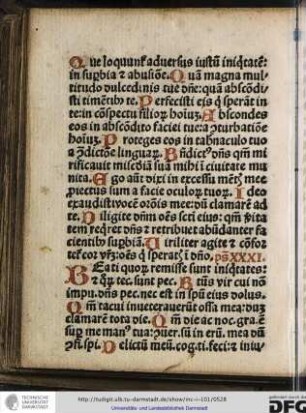 Que loquunt̃ adversus iustũ iniq̃tatẽ:
in supbia ⁊ abusiõe. Quã magna mul-
titudo dulcedinis tue dñe: quã abscõdi-
sti timẽtibꝰ te. Perfecisti eis q̃ sperãt in
te: in cõspectu filioꝝ hoĩuꝫ. Abscondes
eos in abscõdito faciei tue: a ꝯturbatiõne
hoĩuꝫ. Proteges eos in tabnaculo tuo
a ꝯdictiõe linguaꝝ. Bñdictꝰ dñs qm̃ mi
rificauit miscdiã sua mihi ĩ ciuitate mu
nita. Ego aũt dixi in excessu mẽt͛ mee
piectus sum a facie oculoꝝ tuoꝝ. Ideo
exaudisti vocẽ orõis mee: dũ clamarẽ ad
te. Diligite dñm oẽs scti eius: qm̃ ꝟita
tem reqret dñs ⁊ retribuet abũdanter fa
cientibꝰ supbiã. Uiriliter agite ⁊ cõfor
tet̃ cor vr̃ꝫ: oẽs q̃ sperat͛ ĩ dño. ps̃ XXXI.
BEati quoꝝ remisse sunt iniq̃tates:
⁊ q̃ꝝ tec. sunt pec. Btũs vir cui nõ
impu. dñs pec. nec est in spũ eius dolus.
Qm̃ tacui inueterauerũt ossa mea: duꝫ
clamarẽ tota die. Qm̃ die ac noc. gra. ẽ
sup me manꝰ tua: ꝯuer. sũ in eru. mea dũ
ꝯfi. spi. Delictũ meũ. cog. ti. feci: ⁊ iniu-
TECHNISCHE
UNIVERSITÄT
DARMSTADT
http://tudigit.ulb.tu-darmstadt.de/show/inc-i-101/0528
Universitäts- und Landesbibliothek Darmstadt
gefördert von der
DFG